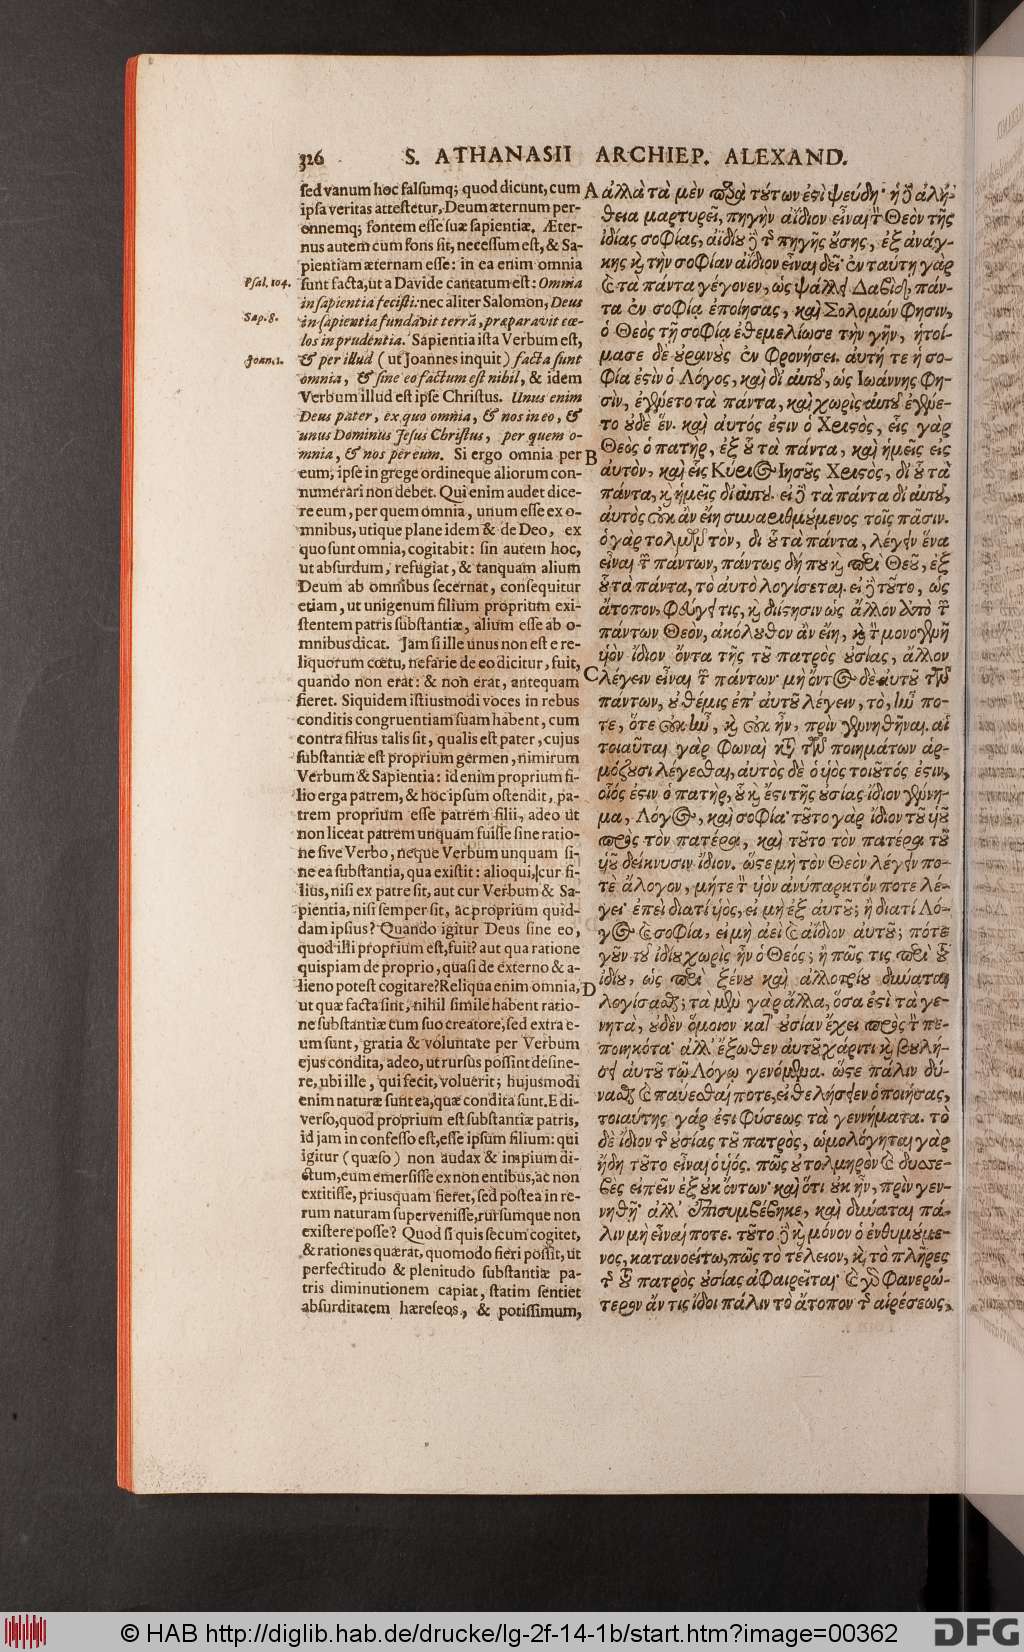 326 S. ATHANASII ARCHIEP. ALEXAND.
sed vanum hoc falsumq; quod dicunt, cum
ipsa veritas attestetur, Deum æternum per-
onnemq; fontem esse suæ sapientiæ. Æter-
nus autem cum fons sit, necessum est, & Sa-
pientiam æternam esse: in ea enim omnia
Psal. 104. sunt facta, ut a Davide cantatum est: Omnia
in sapientia fecisti: nec aliter Salomon, Deus
Sap. 8. in sapientia fundavit terrã, præparavit cœ-
los in prudentia. Sapientia ista Verbum est,
Joan. 1. & per illud (ut Joannes inquit) facta sunt
omnia, & sine eo factum est nihil, & idem
Verbum illud est ipse Christus. Unus enim
Deus pater, ex quo omnia, & nos in eo, &
unus Dominus Jesus Christus, per quem o-
mnia, & nos per eum. Si ergo omnia per
eum, ipse in grege ordineque aliorum con-
numerari non debet. Qui enim audet dice-
re eum, per quem omnia, unum esse ex o-
mnibus, utique plane idem & de Deo, ex
quo sunt omnia, cogitabit: sin autem hoc,
ut absurdum, refugiat, & tanquam alium
Deum ab omnibus secernat, consequitur
etiam, ut unigenum filium proprium exi-
stentem patris substantiæ, alium esse ab o-
mnibus dicat. Jam si ille unus non est e re-
liquorum cœtu, nefarie de eo dicitur, fuit,
quando non erat: & non erat, antequam
fieret. Siquidem istiusmodi voces in rebus
conditis congruentiam suam habent, cum
contra filius talis sit, qualis est pater, cujus
substantiæ est proprium germen, nimirum
Verbum & Sapientia: id enim proprium fi-
lio erga patrem, & hoc ipsum ostendit, pa-
trem proprium esse patrem filii, adeo ut
non liceat patrem unquam fuisse sine ratio-
ne sive Verbo, neque Verbum unquam si-
ne ea substantia, qua existit: alioqui, cur fi-
lius, nisi ex patre sit, aut cur Verbum & Sa-
pientia, nisi semper sit, ac proprium quid-
dam ipsius? Quando igitur Deus sine eo,
quod illi proprium est, fuit? aut qua ratione
quispiam de proprio, quasi de externo & a-
lieno potest cogitare? Reliqua enim omnia,
ut quæ facta sint, nihil simile habent ratio-
ne substantiæ cum suo creatore, sed extra e-
um sunt, gratia & voluntate per Verbum
ejus condita, adeo, ut rursus possint desine-
re, ubi ille, qui fecit, voluerit; hujusmodi
enim naturæ sunt ea, quæ condita sunt. E di-
verso, quod proprium est substantiæ patris,
id jam in confesso est, esse ipsum filium: qui
igitur (quæso) non audax & impium di-
ctum, eum emersisse ex non entibus, ac non
extitisse, priusquam fieret, sed postea in re-
rum naturam supervenisse, rursumque non
existere posse? Quod si quis secum cogitet,
& rationes quærat, quomodo fieri possit, ut
perfectitudo & plenitudo substantiæ pa-
tris diminutionem capiat, statim sentiet
absurditatem hæreseos, & potissimum,
A ἀλλὰ τὰ μὲν παρὰ τούτων ἐστὶ ψεύδη· ἡ δὲ ἀλή-
θεια μαρτυρεῖ, πηγὴν ἀΐδιον εἶναι τὸν Θεὸν τῆς
ἰδίας σοφίας, ἀϊδίου δὲ τῆς πηγῆς οὔσης, ἐξ ἀνάγ-
κης καὶ τὴν σοφίαν ἀΐδιον εἶναι δεῖ· ἐν ταύτῃ γὰρ
καὶ τὰ πάντα γέγονεν, ὡς ψάλλει Δαβίδ, πάν-
τα ἐν σοφίᾳ ἐποίησας, καὶ Σολομών φησιν,
ὁ Θεὸς τῇ σοφίᾳ ἐθεμελίωσε τὴν γῆν, ἡτοί-
μασε δὲ οὐρανοὺς ἐν φρονήσει. αὐτή τε ἡ σο-
φία ἐστὶν ὁ Λόγος, καὶ δι' αὐτοῦ, ὡς Ἰωάννης φη-
σίν, ἐγένετο τὰ πάντα, καὶ χωρὶς αὐτοῦ ἐγένε-
το οὐδὲ ἕν. καὶ αὐτός ἐστιν ὁ Χριστὸς, εἷς γὰρ
B Θεὸς ὁ πατὴρ, ἐξ οὗ τὰ πάντα, καὶ ἡμεῖς εἰς
αὐτόν, καὶ εἷς Κύριος Ἰησοῦς Χριστὸς, δι' οὗ τὰ
πάντα, καὶ ἡμεῖς δι' αὐτοῦ. εἰ δὲ τὰ πάντα δι' αὐτοῦ,
αὐτὸς οὐκ ἂν εἴη συναριθμούμενος τοῖς πᾶσιν.
ὁ γὰρ τολμῶν τὸν, δι' οὗ τὰ πάντα, λέγειν ἕνα
εἶναι τῶν πάντων, πάντως δή που καὶ περὶ Θεοῦ, ἐξ
οὗ τὰ πάντα, τὸ αὐτὸ λογίσεται. εἰ δὲ τοῦτο, ὡς
ἄτοπον, φεύγει τις, καὶ διΐστησιν ὡς ἄλλον ἀπὸ τῶν
πάντων Θεόν, ἀκόλουθον ἂν εἴη, καὶ τὸν μονογενῆ
υἱὸν ἴδιον ὄντα τῆς τοῦ πατρὸς οὐσίας, ἄλλον
C λέγειν εἶναι τῶν πάντων· μὴ ὄντος δὲ αὐτοῦ τῶν
πάντων, οὐ θέμις ἐπ' αὐτοῦ λέγειν, τὸ, ἦν πο-
τε, ὅτε οὐκ ἦν, καὶ οὐκ ἦν, πρὶν γεννηθῆναι. αἱ
τοιαῦται γὰρ φωναὶ κατὰ τῶν ποιημάτων ἁρ-
μόζουσι λέγεσθαι, αὐτὸς δὲ ὁ υἱὸς τοιοῦτός ἐστιν,
οἷός ἐστιν ὁ πατὴρ, οὗ καὶ ἔστι τῆς οὐσίας ἴδιον γέννη-
μα, Λόγος, καὶ σοφία· τοῦτο γὰρ ἴδιον τοῦ υἱοῦ
πρὸς τὸν πατέρα, καὶ τοῦτο τὸν πατέρα τοῦ
υἱοῦ δείκνυσιν ἴδιον. ὥστε μὴ τὸν Θεὸν λέγειν πο-
τὲ ἄλογον, μήτε τὸν υἱὸν ἀνύπαρκτόν ποτε λέ-
γει· ἐπεὶ διατί υἱὸς, εἰ μὴ ἐξ αὐτοῦ; ἢ διατί Λό-
γος καὶ σοφία, εἰ μὴ ἀεὶ καὶ ἀΐδιον αὐτοῦ; πότε
γοῦν τοῦ ἰδίου χωρὶς ἦν ὁ Θεός; ἢ πῶς τις περὶ τοῦ
ἰδίου, ὡς περὶ ξένου καὶ ἀλλοτρίου δύναται
D λογίσασθαι; τὰ μὲν γὰρ ἄλλα, ὅσα ἐστὶ τὰ γε-
νητὰ, οὐδὲν ὅμοιον κατ' οὐσίαν ἔχει πρὸς τὸν πε-
ποιηκότα· ἀλλ' ἔξωθεν αὐτοῦ χάριτι καὶ βουλή-
σει αὐτοῦ τῷ Λόγῳ γενόμενα. ὥστε πάλιν δύ-
νασθαι καὶ παύεσθαί ποτε, εἰ θελήσειεν ὁ ποιήσας,
τοιαύτης γάρ ἐστι φύσεως τὰ γεννήματα. τὸ
δὲ ἴδιον τῆς οὐσίας τοῦ πατρὸς, ὡμολόγηται γὰρ
ἤδη τοῦτο εἶναι ὁ υἱός. πῶς οὐ τολμηρὸν καὶ δυσσε-
βὲς εἰπεῖν ἐξ οὐκ ὄντων· καὶ ὅτι οὐκ ἦν, πρὶν γεν-
νηθῇ· ἀλλ' ἐπισυμβέβηκε, καὶ δύναται πά-
λιν μὴ εἶναί ποτε. τοῦτο δὲ καὶ μόνον ὁ ἐνθυμούμε-
νος, κατανοείτω, πῶς τὸ τέλειον, καὶ τὸ πλῆρες
τῆς τοῦ πατρὸς οὐσίας ἀφαιρεῖται· καὶ γὰρ φανερώ-
τερον ἄν τις ἴδοι πάλιν τὸ ἄτοπον τῆς αἱρέσεως,
© HAB http://diglib.hab.de/drucke/lg-2f-14-1b/start.htm?image=00362
DFG